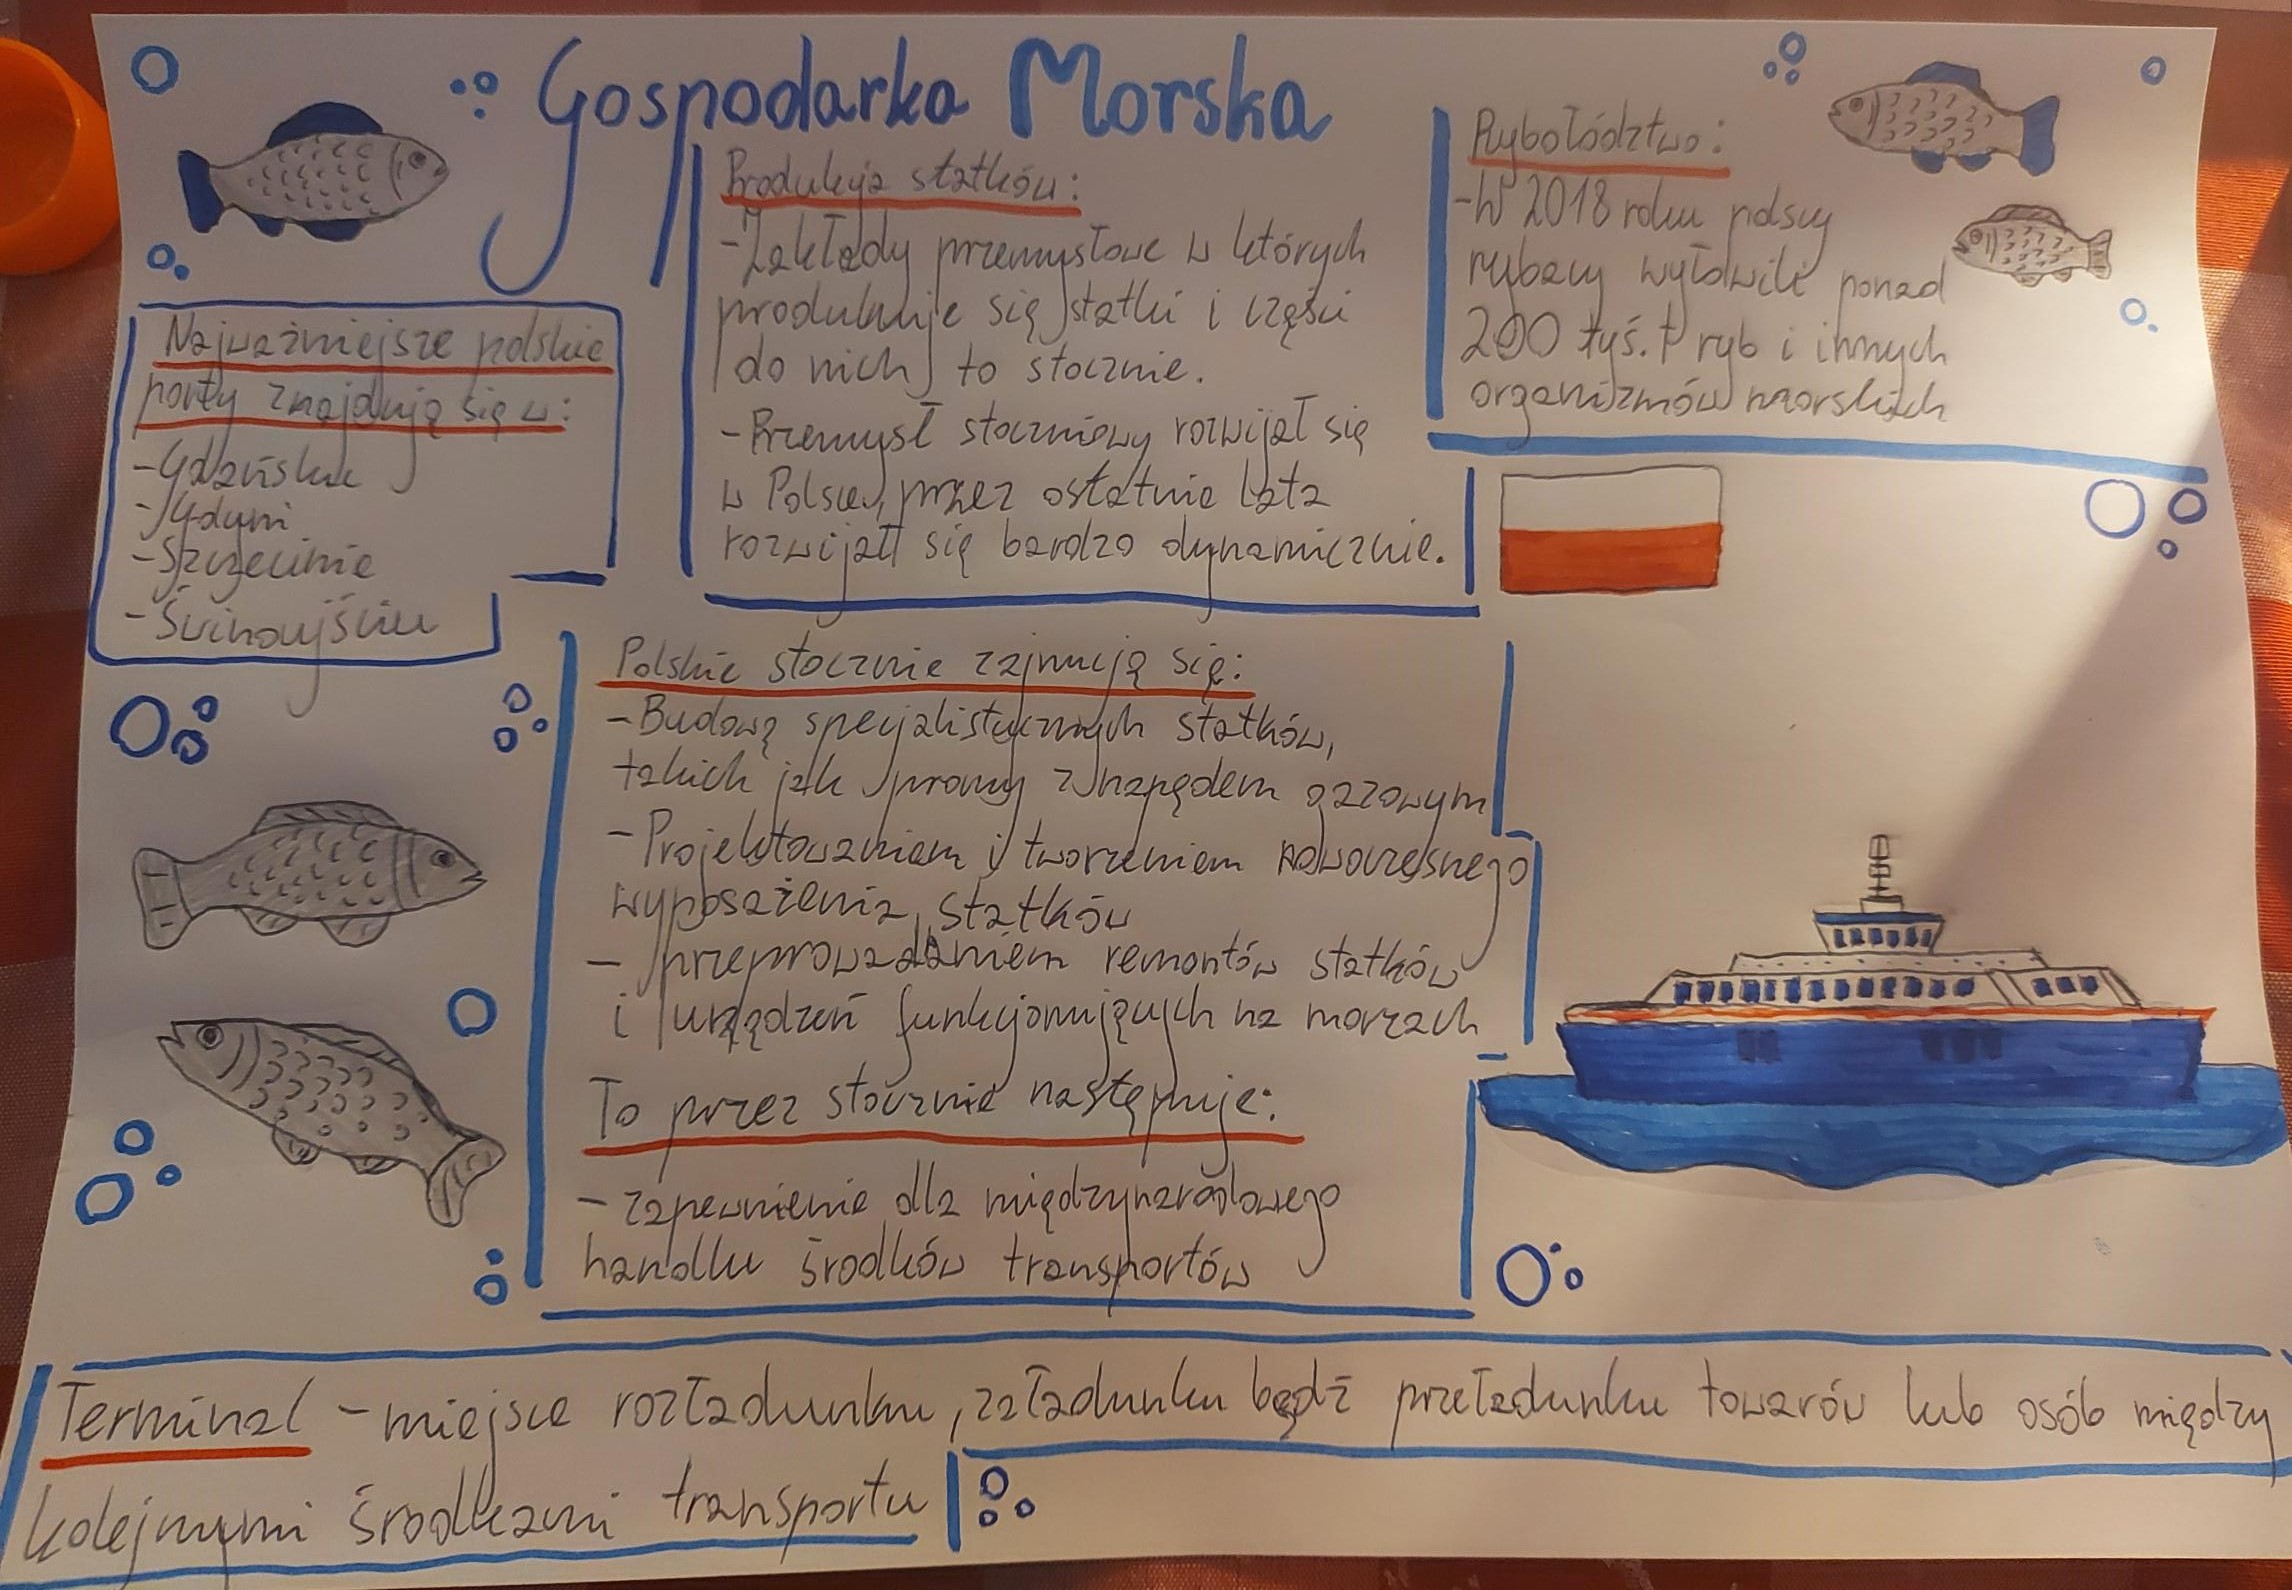 Gospodarka Morska
Najważniejsze polskie
porty znajdują się w:
-Gdańsku
-Gdyni
-Szczecinie
-Świnoujściu
Produkcja statków:
-Zakłady przemysłowe w których
produkuje się statki i części
do nich to stocznie.
-Przemysł stoczniowy rozwijał się
w Polsce, przez ostatnie lata
rozwijał się bardzo dynamicznie.
Rybołództwo:
-W 2018 roku polscy
rybacy wyłowili ponad
200 tyś. t ryb i innych
organizmów morskich
Polskie stocznie zajmują się:
-Budową specjalistycznych statków,
takich jak promy z napędem gazowym
-Projektowaniem i tworzeniem nowoczesnego
wyposażenia statków
- przeprowadzaniem remontów statków
i urządzeń funkcjonujących na morzach
To przez stocznie następuje:
- zapewnienie dla międzynarodowego
handlu środków transportów
Terminal - miejsce rozładunku, załadunku bądź przeładunku towarów lub osób między
kolejnymi środkami transportu